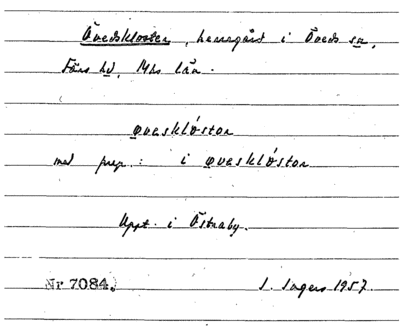 Övedskloster, herrgård i Öveds sn,
Färs hd, Mhs län.
øvasklóstər
med prep.: i øvasklóstər
Uppt. i Östraby.
Nr 7084. I. Ingers 1957.